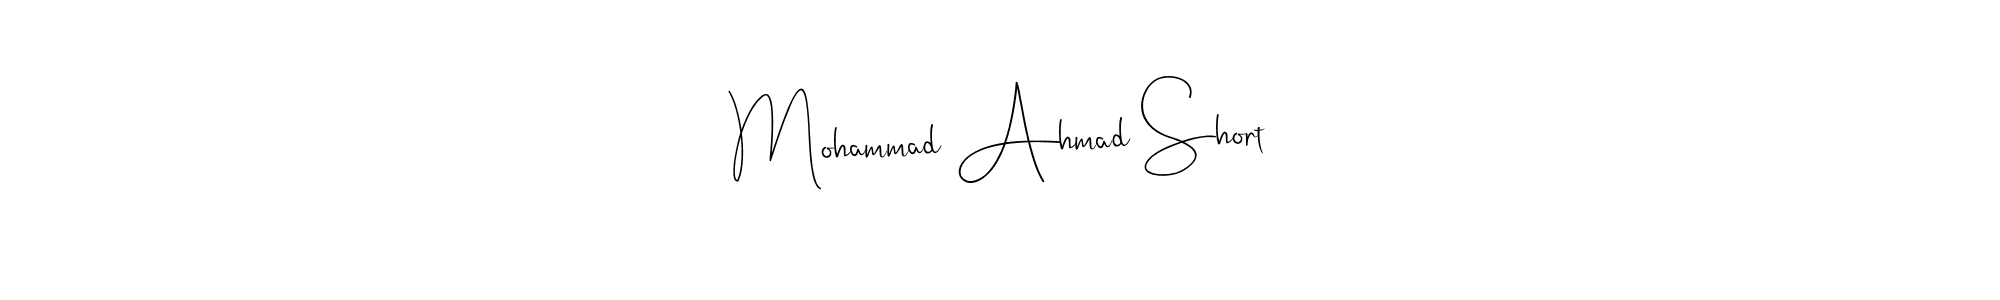 Mohammad Ahmad Short